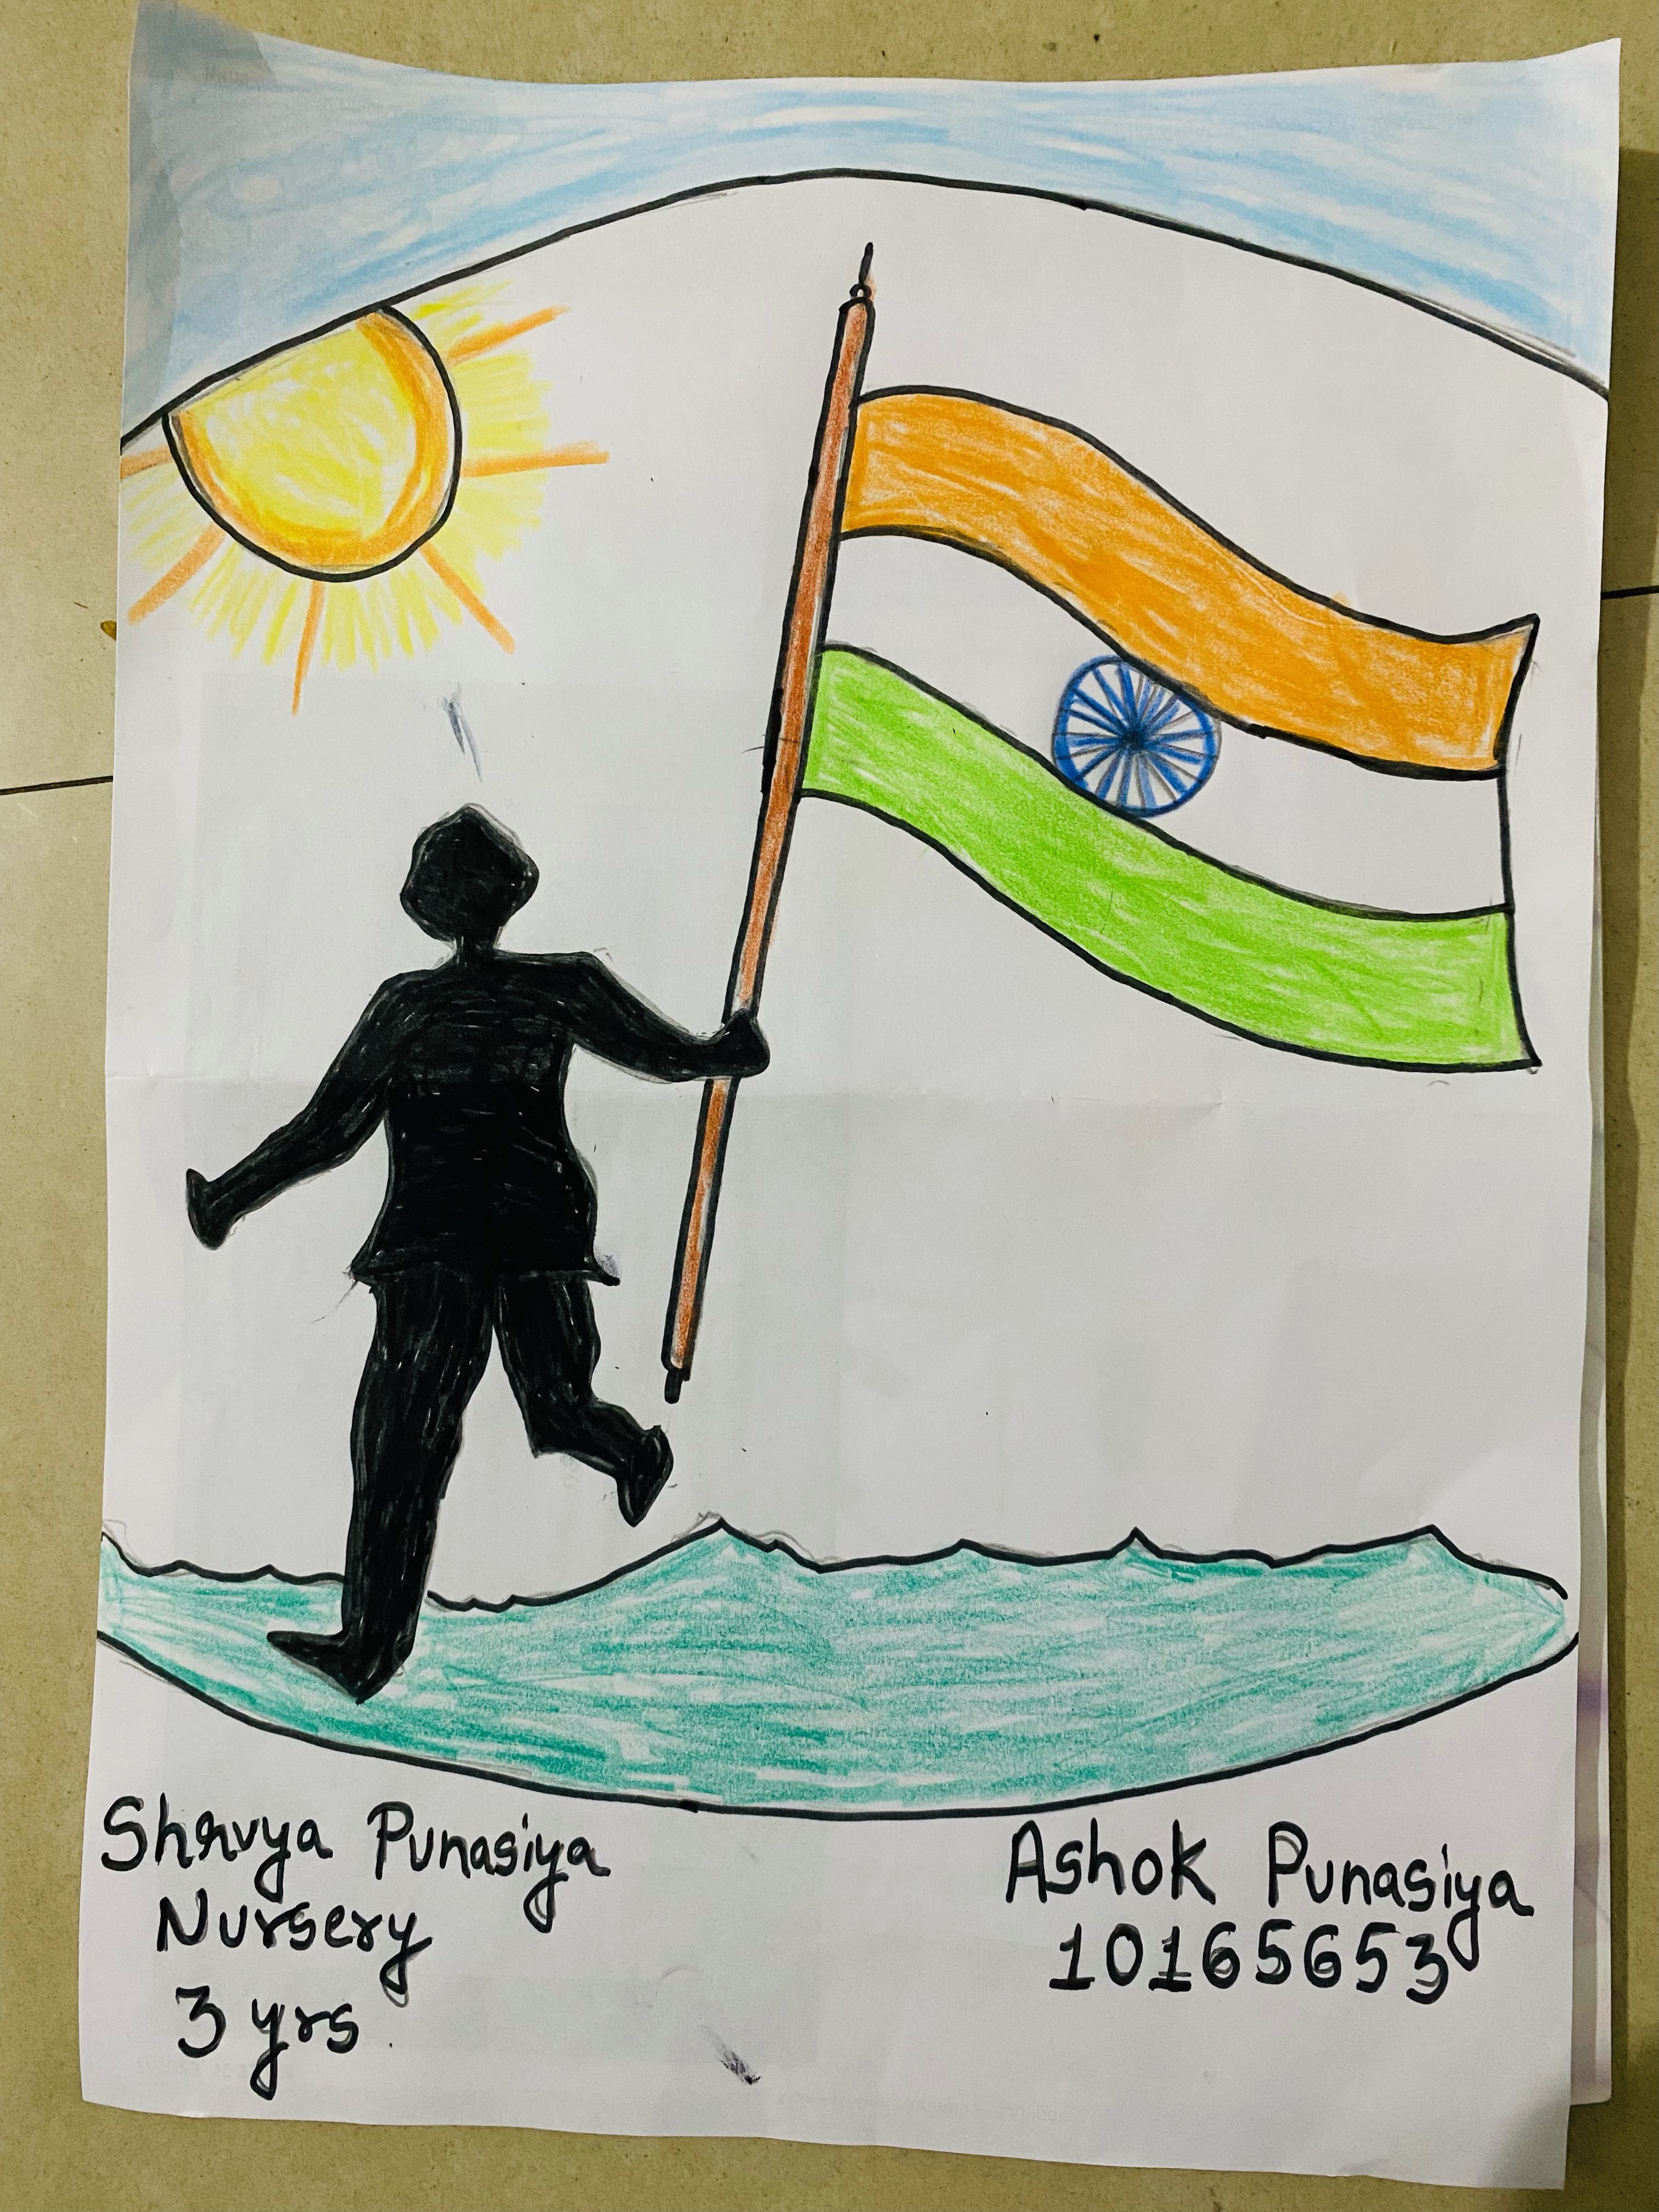 Shravya Punasiya
Nursery
3 yrs.
Ashok Punasiya
10165653